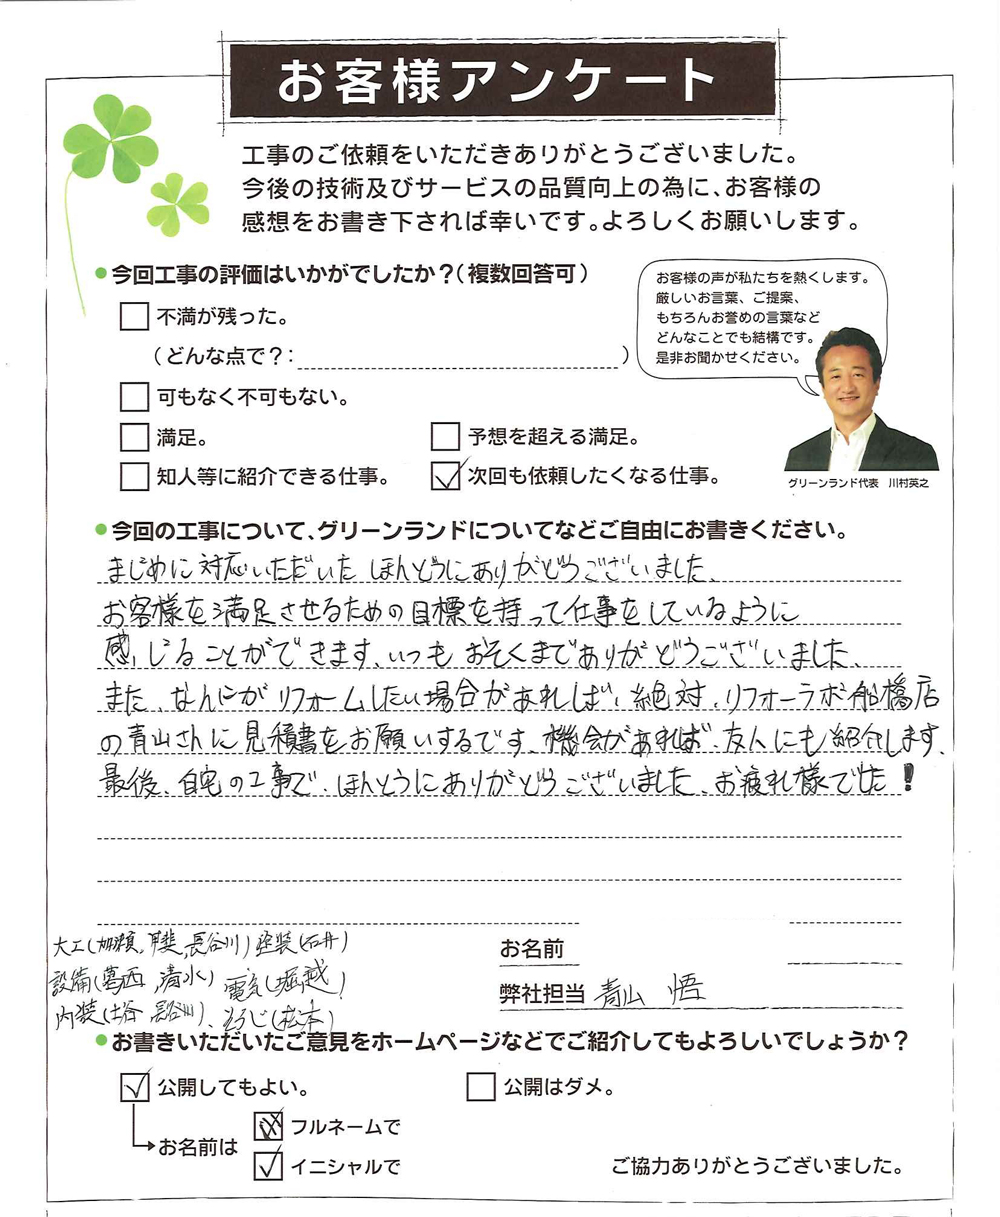 お客様アンケート
工事のご依頼をいただきありがとうございました。
今後の技術及びサービスの品質向上の為に、お客様の
感想をお書き下されば幸いです。よろしくお願いします。
●今回工事の評価はいかがでしたか?(複数回答可)
不満が残った。
(どんな点で?: )
可もなく不可もない。
満足。
予想を超える満足。
知人等に紹介できる仕事。
次回も依頼したくなる仕事。
お客様の声が私たちを熱くします。
厳しいお言葉、ご提案、
もちろんお誉めの言葉など
どんなことでも結構です。
是非お聞かせください。
グリーンランド代表 川村英之
●今回の工事について、グリーンランドについてなどご自由にお書きください。
まじめに対応いただいた ほんどうにありがどうございました、
お客様を満足させるための目標を持って仕事をしているように
感じることができます、いつもおそくまでありがどうございました、
また、なんにがリフォームしたい場合があれしば、絶対、リフォーラボ船橋店
の青山さんに見積書をお願いするです、機会があれば、友人にも紹介します、
最後、自宅の工事で、ほんとうにありがどうございました、お疲れ様でした!
大工(加瀬、甲斐、長谷川)塗装(石井)
設備(葛西、清水)電気(堀越)
内装(土谷、長谷川)、そうじ(松本)
お名前
弊社担当 青山 悟
●お書きいただいたご意見をホームページなどでご紹介してもよろしいでしょうか?
公開してもよい。
公開はダメ。
お名前は
フルネームで
イニシャルで
ご協力ありがとうございました。